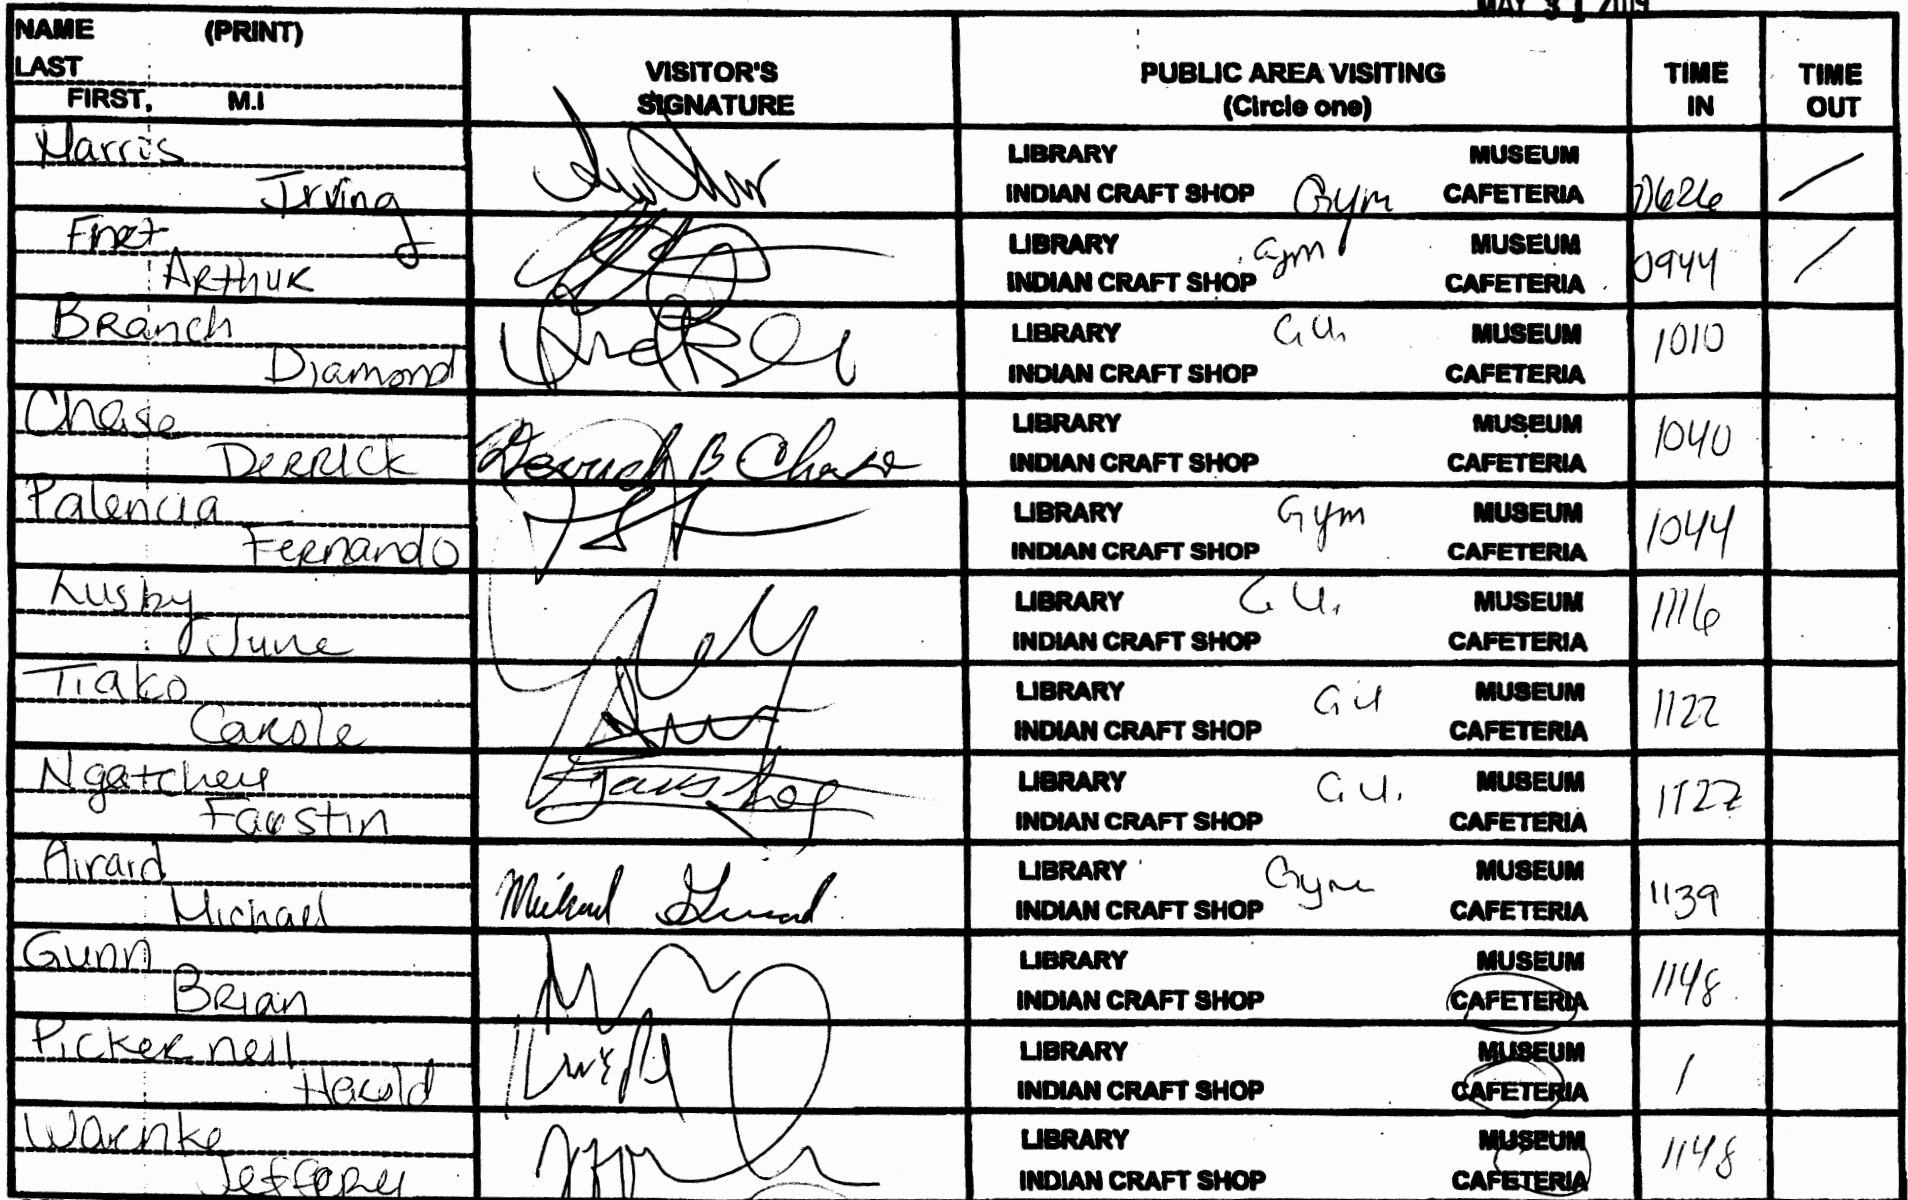 MAY 31 2019
NAME (PRINT)
LAST
FIRST, M.I
VISITOR'S
SIGNATURE
PUBLIC AREA VISITING
(Circle one)
TIME
IN
TIME
OUT
Harris
Irving
LIBRARY MUSEUM
INDIAN CRAFT SHOP Gym CAFETERIA
0626
Finet
ARTHUR
LIBRARY Gym MUSEUM
INDIAN CRAFT SHOP CAFETERIA
0944
Branch
Diamond
LIBRARY G.U. MUSEUM
INDIAN CRAFT SHOP CAFETERIA
1010
Chase
DERRICK
Derrick B Chase
LIBRARY MUSEUM
INDIAN CRAFT SHOP CAFETERIA
1040
Palencia
Fernando
LIBRARY Gym MUSEUM
INDIAN CRAFT SHOP CAFETERIA
1044
Lusby
June
LIBRARY G.U. MUSEUM
INDIAN CRAFT SHOP CAFETERIA
1116
Tiako
Carole
LIBRARY GU MUSEUM
INDIAN CRAFT SHOP CAFETERIA
1122
Ngatcheu
Faustin
LIBRARY G.U. MUSEUM
INDIAN CRAFT SHOP CAFETERIA
1122
Airard
Michael
Michael Girard
LIBRARY Gym MUSEUM
INDIAN CRAFT SHOP CAFETERIA
1139
Gunn
Brian
LIBRARY MUSEUM
INDIAN CRAFT SHOP CAFETERIA
1148
Pickernell
Harold
LIBRARY MUSEUM
INDIAN CRAFT SHOP CAFETERIA
Warnke
Jeffery
LIBRARY MUSEUM
INDIAN CRAFT SHOP CAFETERIA
1148